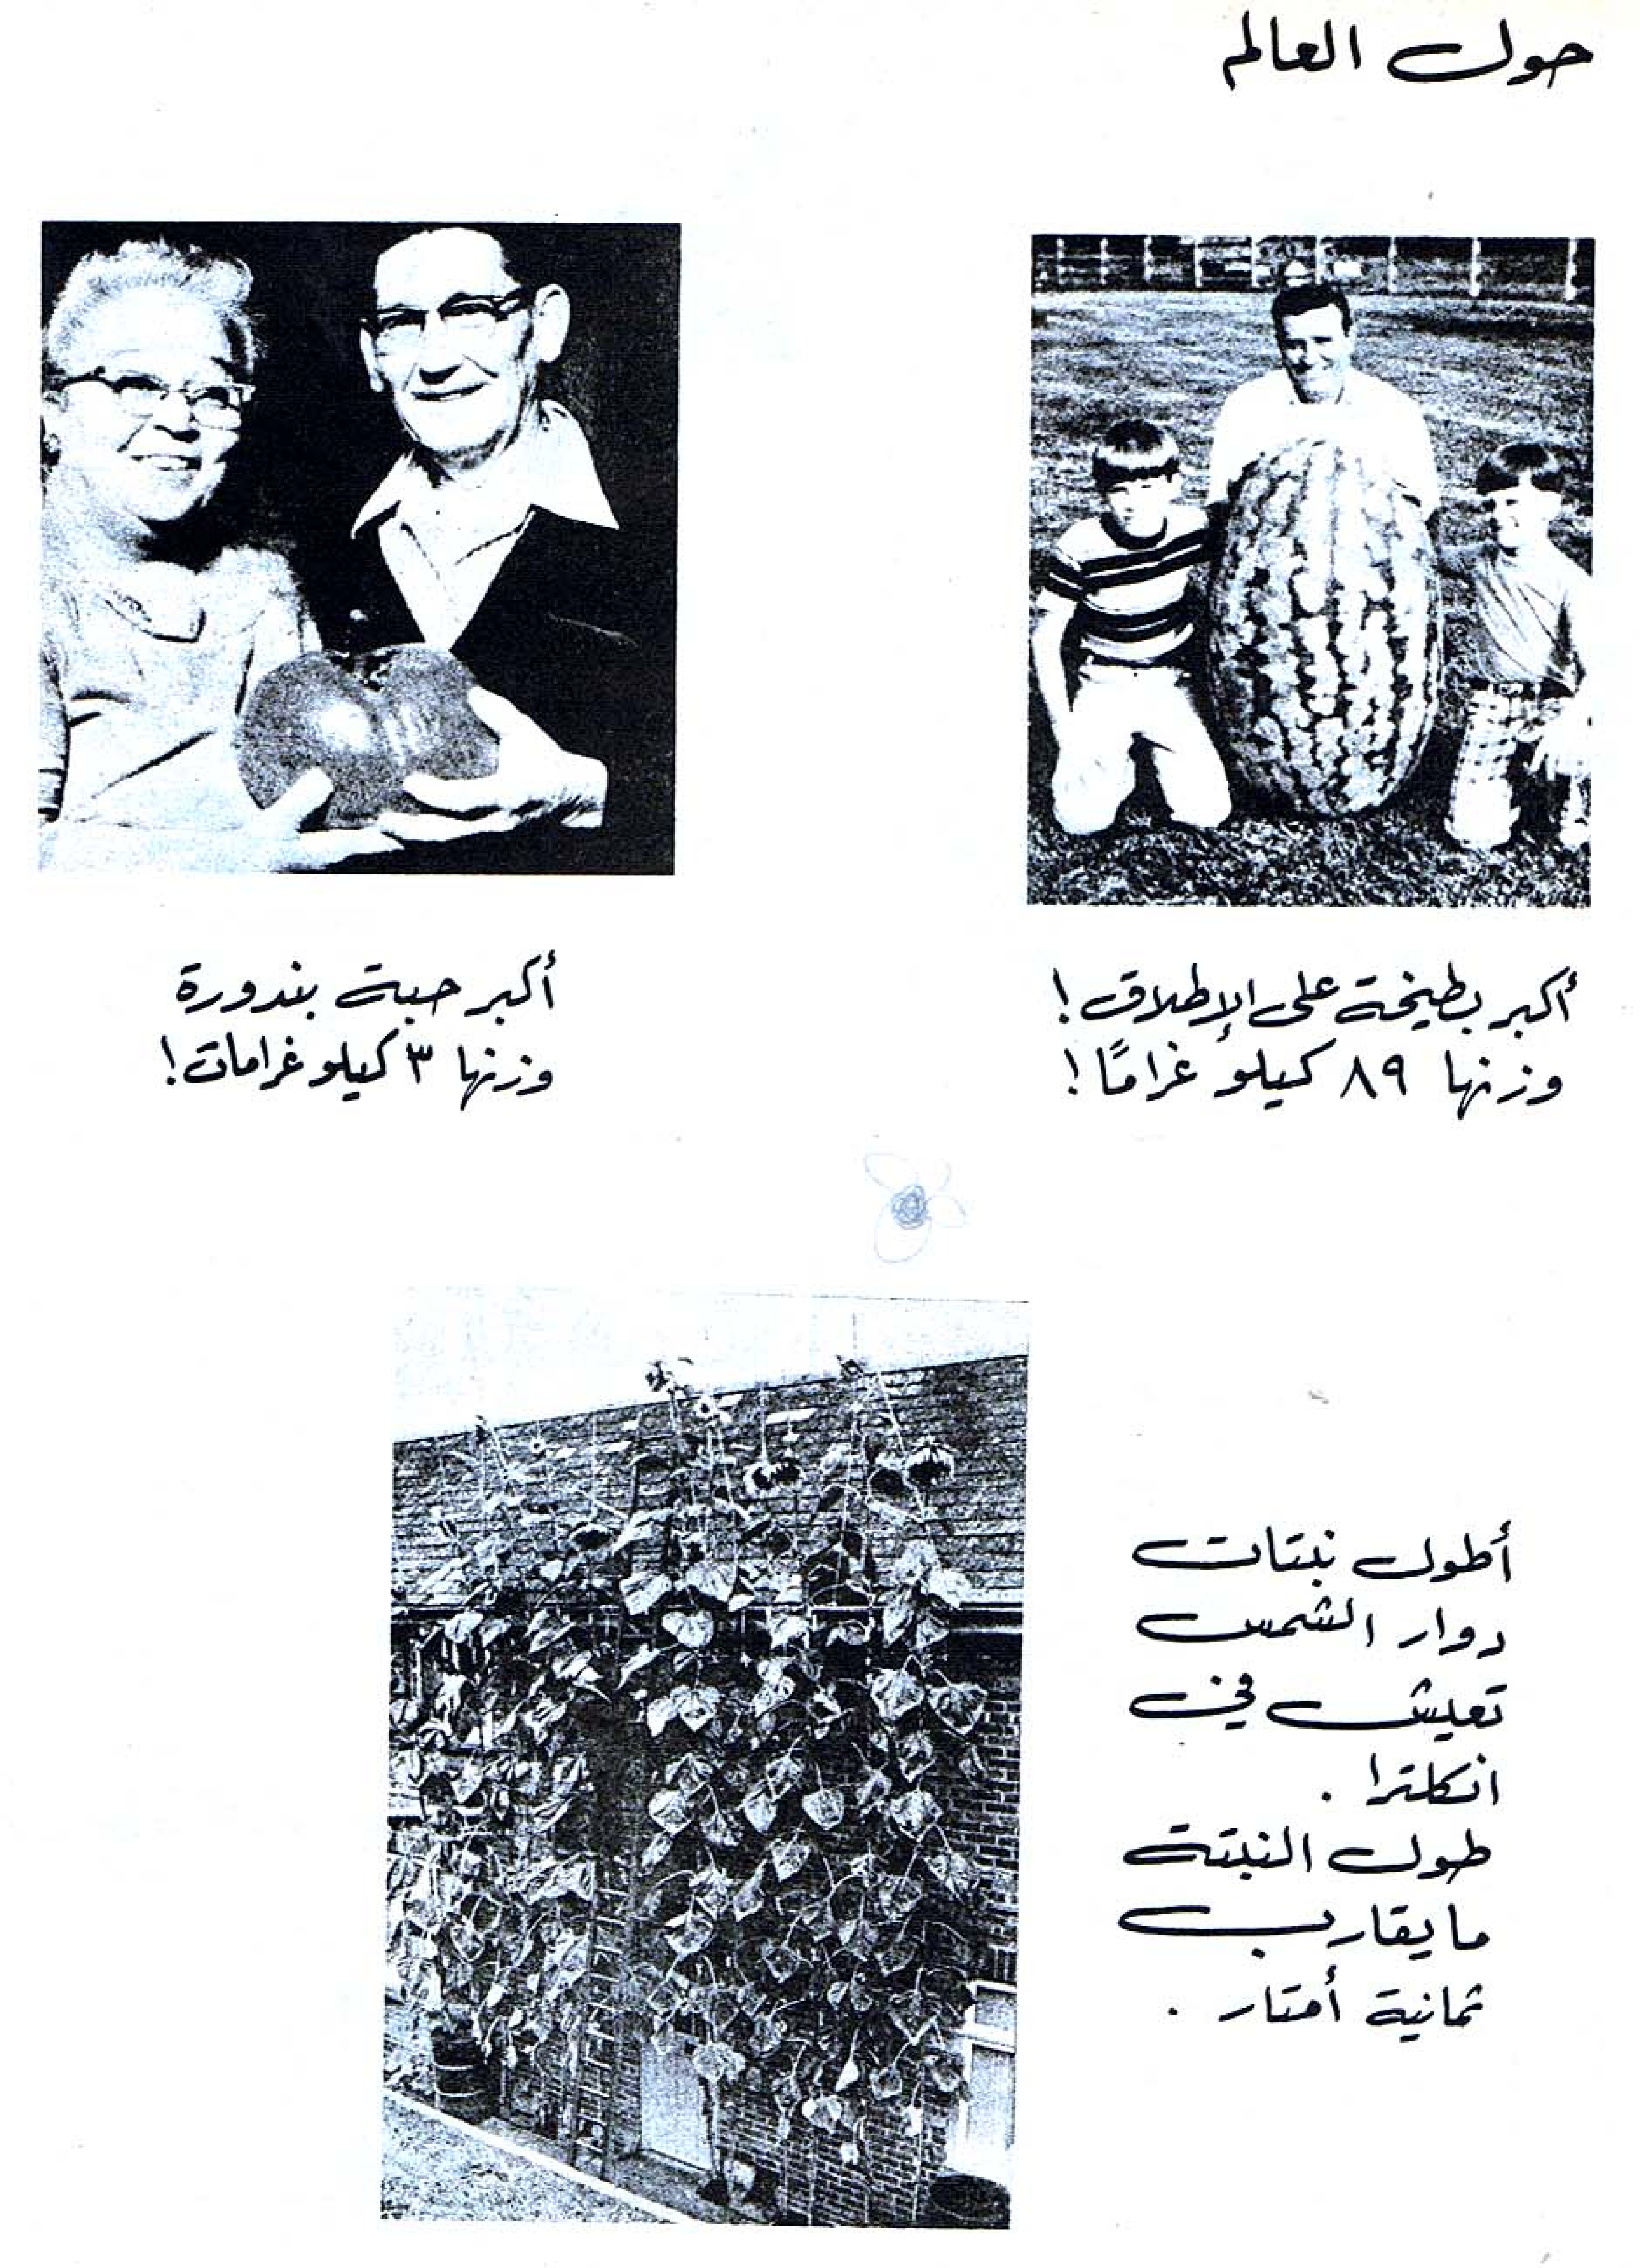 حول العالم
أكبر بطيخة على الإطلاق!
وزنها ٨٩ كيلو غرامًا!
أكبر حبة بندورة
وزنها ٣ كيلو غرامات!
أطول نبتات
دوار الشمس
تعيش في
انكلترا .
طول النبتة
ما يقارب
ثمانية أمتار .